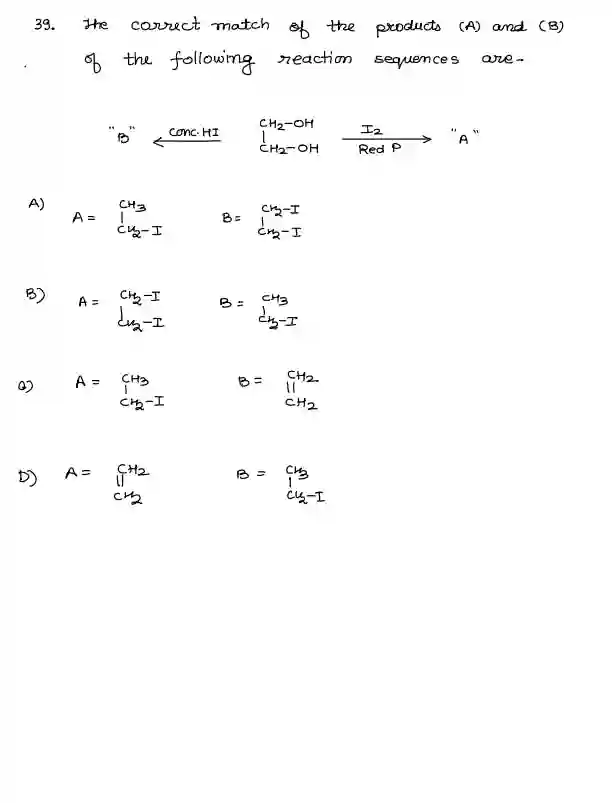 39. The correct match of the products (A) and (B)
of the following reaction sequences are-
"B" ← conc. HI CH2-OH | CH2-OH I2 Red P → "A"
A) A = CH3 | CH2-I B = CH2-I | CH2-I
B) A = CH2-I | CH2-I B = CH3 | CH2-I
C) A = CH3 | CH2-I B = CH2 || CH2
D) A = CH2 || CH2 B = CH3 | CH2-I